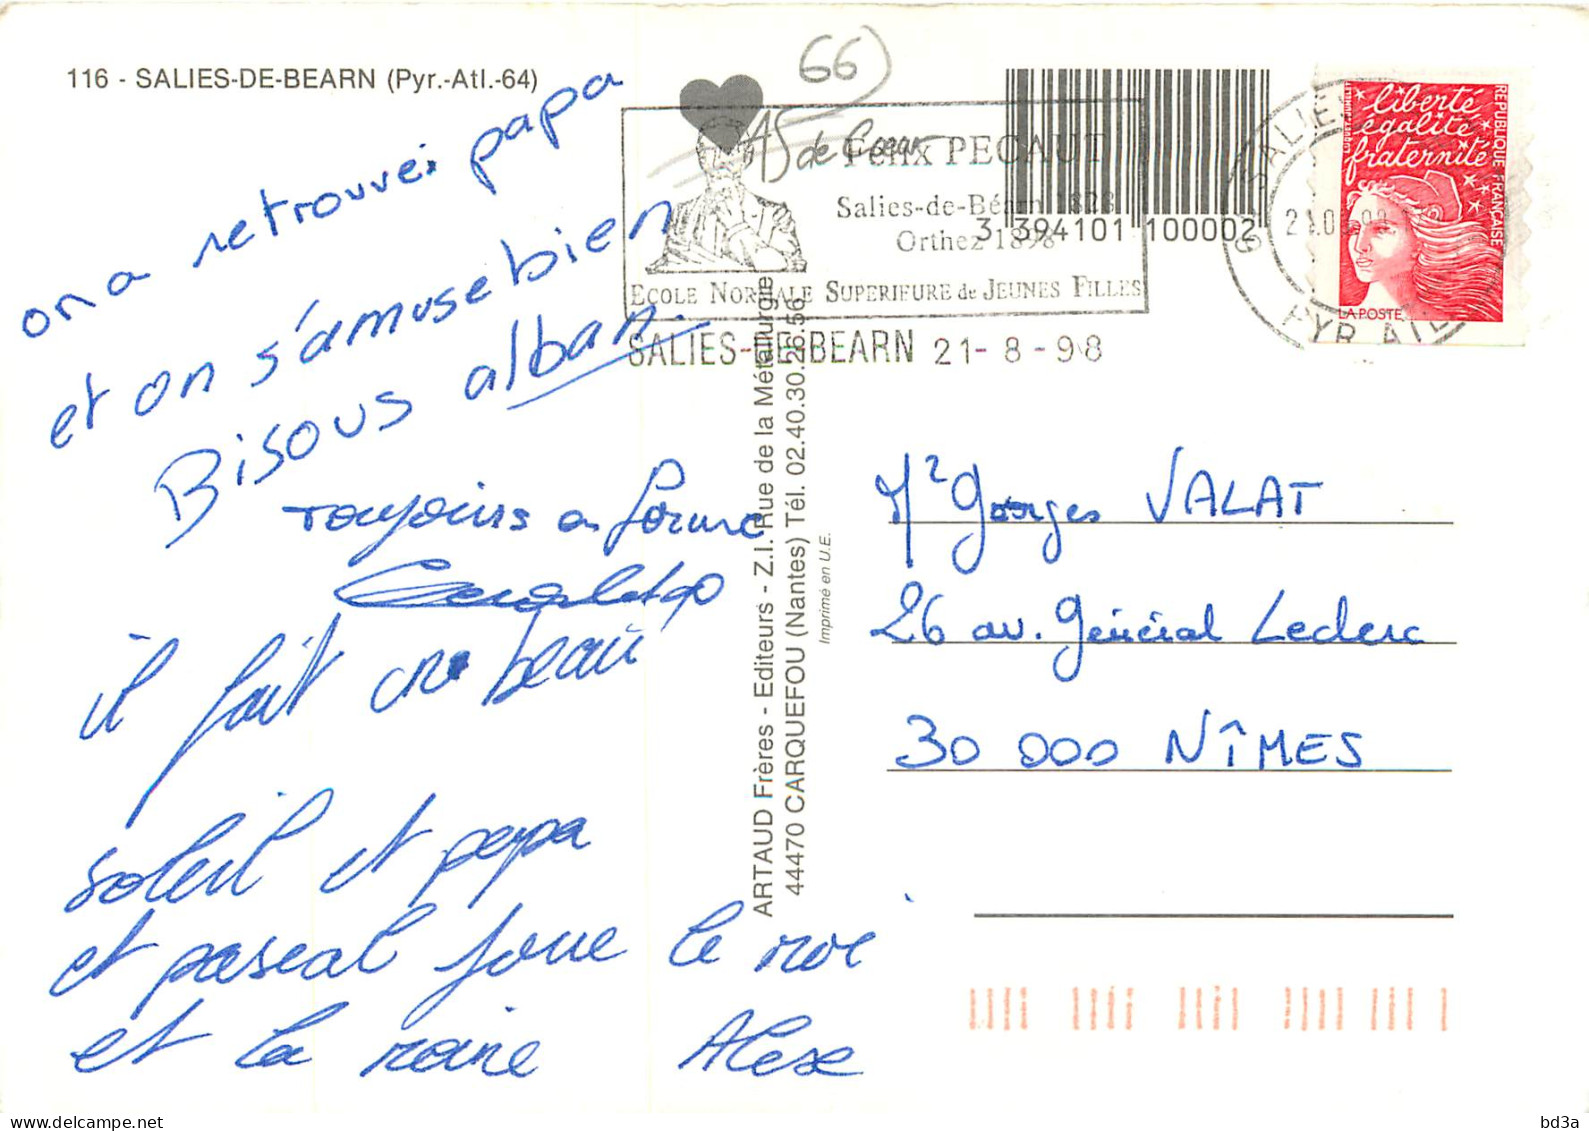 116 - SALIES-DE-BEARN (Pyr.-Atl.-64)
66)
AS de Coeur
Félix PECAUT
Salies-de-Béarn 1828
Orthez 1898
ECOLE NORMALE SUPERIEURE de JEUNES FILLES
SALIES-DE-BEARN 21- 8 -98
3 394101 100002
SALIES
PYR ATL
liberté
égalité
fraternité
REPUBLIQUE FRANÇAISE
LA POSTE
on a retrouvei papa
et on s'amuse bien
Bisous alban.
Toujours en forme
il fait un beau
soleil et papa
et pascal joue le roi
et la raine Alex
ARTAUD Frères - Editeurs - Z.I. Rue de la Métallurgie
44470 CARQUEFOU (Nantes) Tél. 02.40.30.26.56
Imprimé en U.E.
Mr Georges VALAT
26 av. Général Leclerc
30 000 NÎMES
bd3a